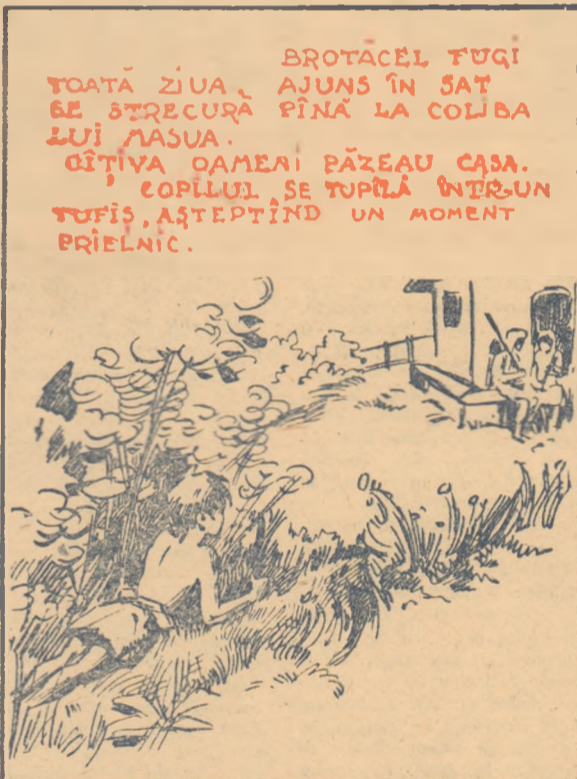 BROTĂCEL FUGI
TOATĂ ZIUA. AJUNS ÎN SAT
SE STRECURĂ PÎNĂ LA COLIBA
LUI MASUA.
CÎȚIVA OAMENI PĂZEAU CASA.
COPILUL SE TUPILĂ ÎNTR-UN
TUFIȘ, AȘTEPTÎND UN MOMENT
PRIELNIC.